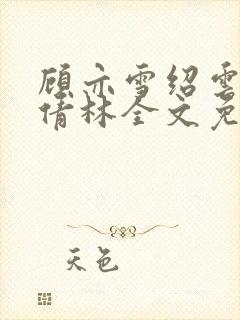 顾亦雪绍云
倩林全文免
天色